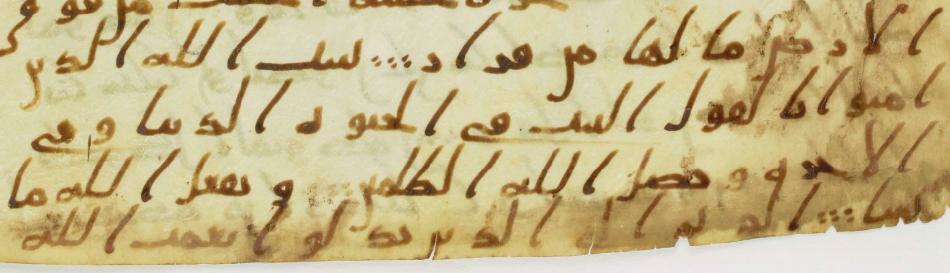 من فوق
الارض ما لها من قرار يثبت الله الذين
امنوا بالقول الثبت في الحيوة الدنيا وفي
الاخرة ويضل الله الظلمين ويفعل الله ما
يشا الم تر الى الذين بدلوا نعمت الله